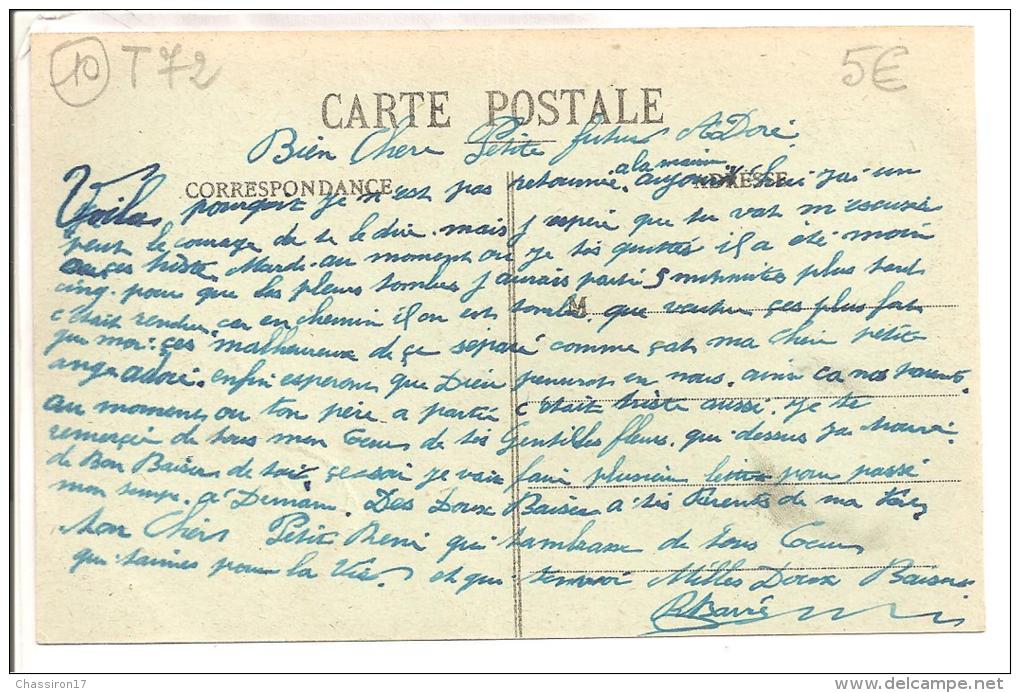 10 T72
5€
CARTE POSTALE
Bien Chere Petite futur Adoré.
a la maison
CORRESPONDANCE
ADRESSE
Voila pourquoit je n'est pas retournée aujourd'hui j'ai un
peut le courage de te le dire. mais j'espère que tu vat m'escusée
triste Mardi. au moment où je tès quittée il a été moin
cinq. pour que les pleurs tombes j'aurais parti 5 minutes plus tard
c'était rendu, car en chemin il on est tombé. que veutu ces plus fort
M
que moi: ces malheureux de çe séparé comme çat ma Cher petite
ange adoré. enfin esperons que Dieu penseras en nous. ainsi ca nos parents
au moments ou ton père a partie c'était triste aussi. Je te
remerçie de tous mon Coeur de tès Gentilles fleurs. que dessus j'ai trouvé
de Bon Baiser de toi, çe soir je vais faire plusieur lettre pour passé
mon temps. a Demain. Des Doux Baiser a tès Parents de ma
Mon Chers Petit René qui t'ambrasse de tous Coeur
qui t'aimes pour la Vie. et qui tenvoi Milles Doux Baisers
R Barré
© Chassiron17
www.delcampe.net